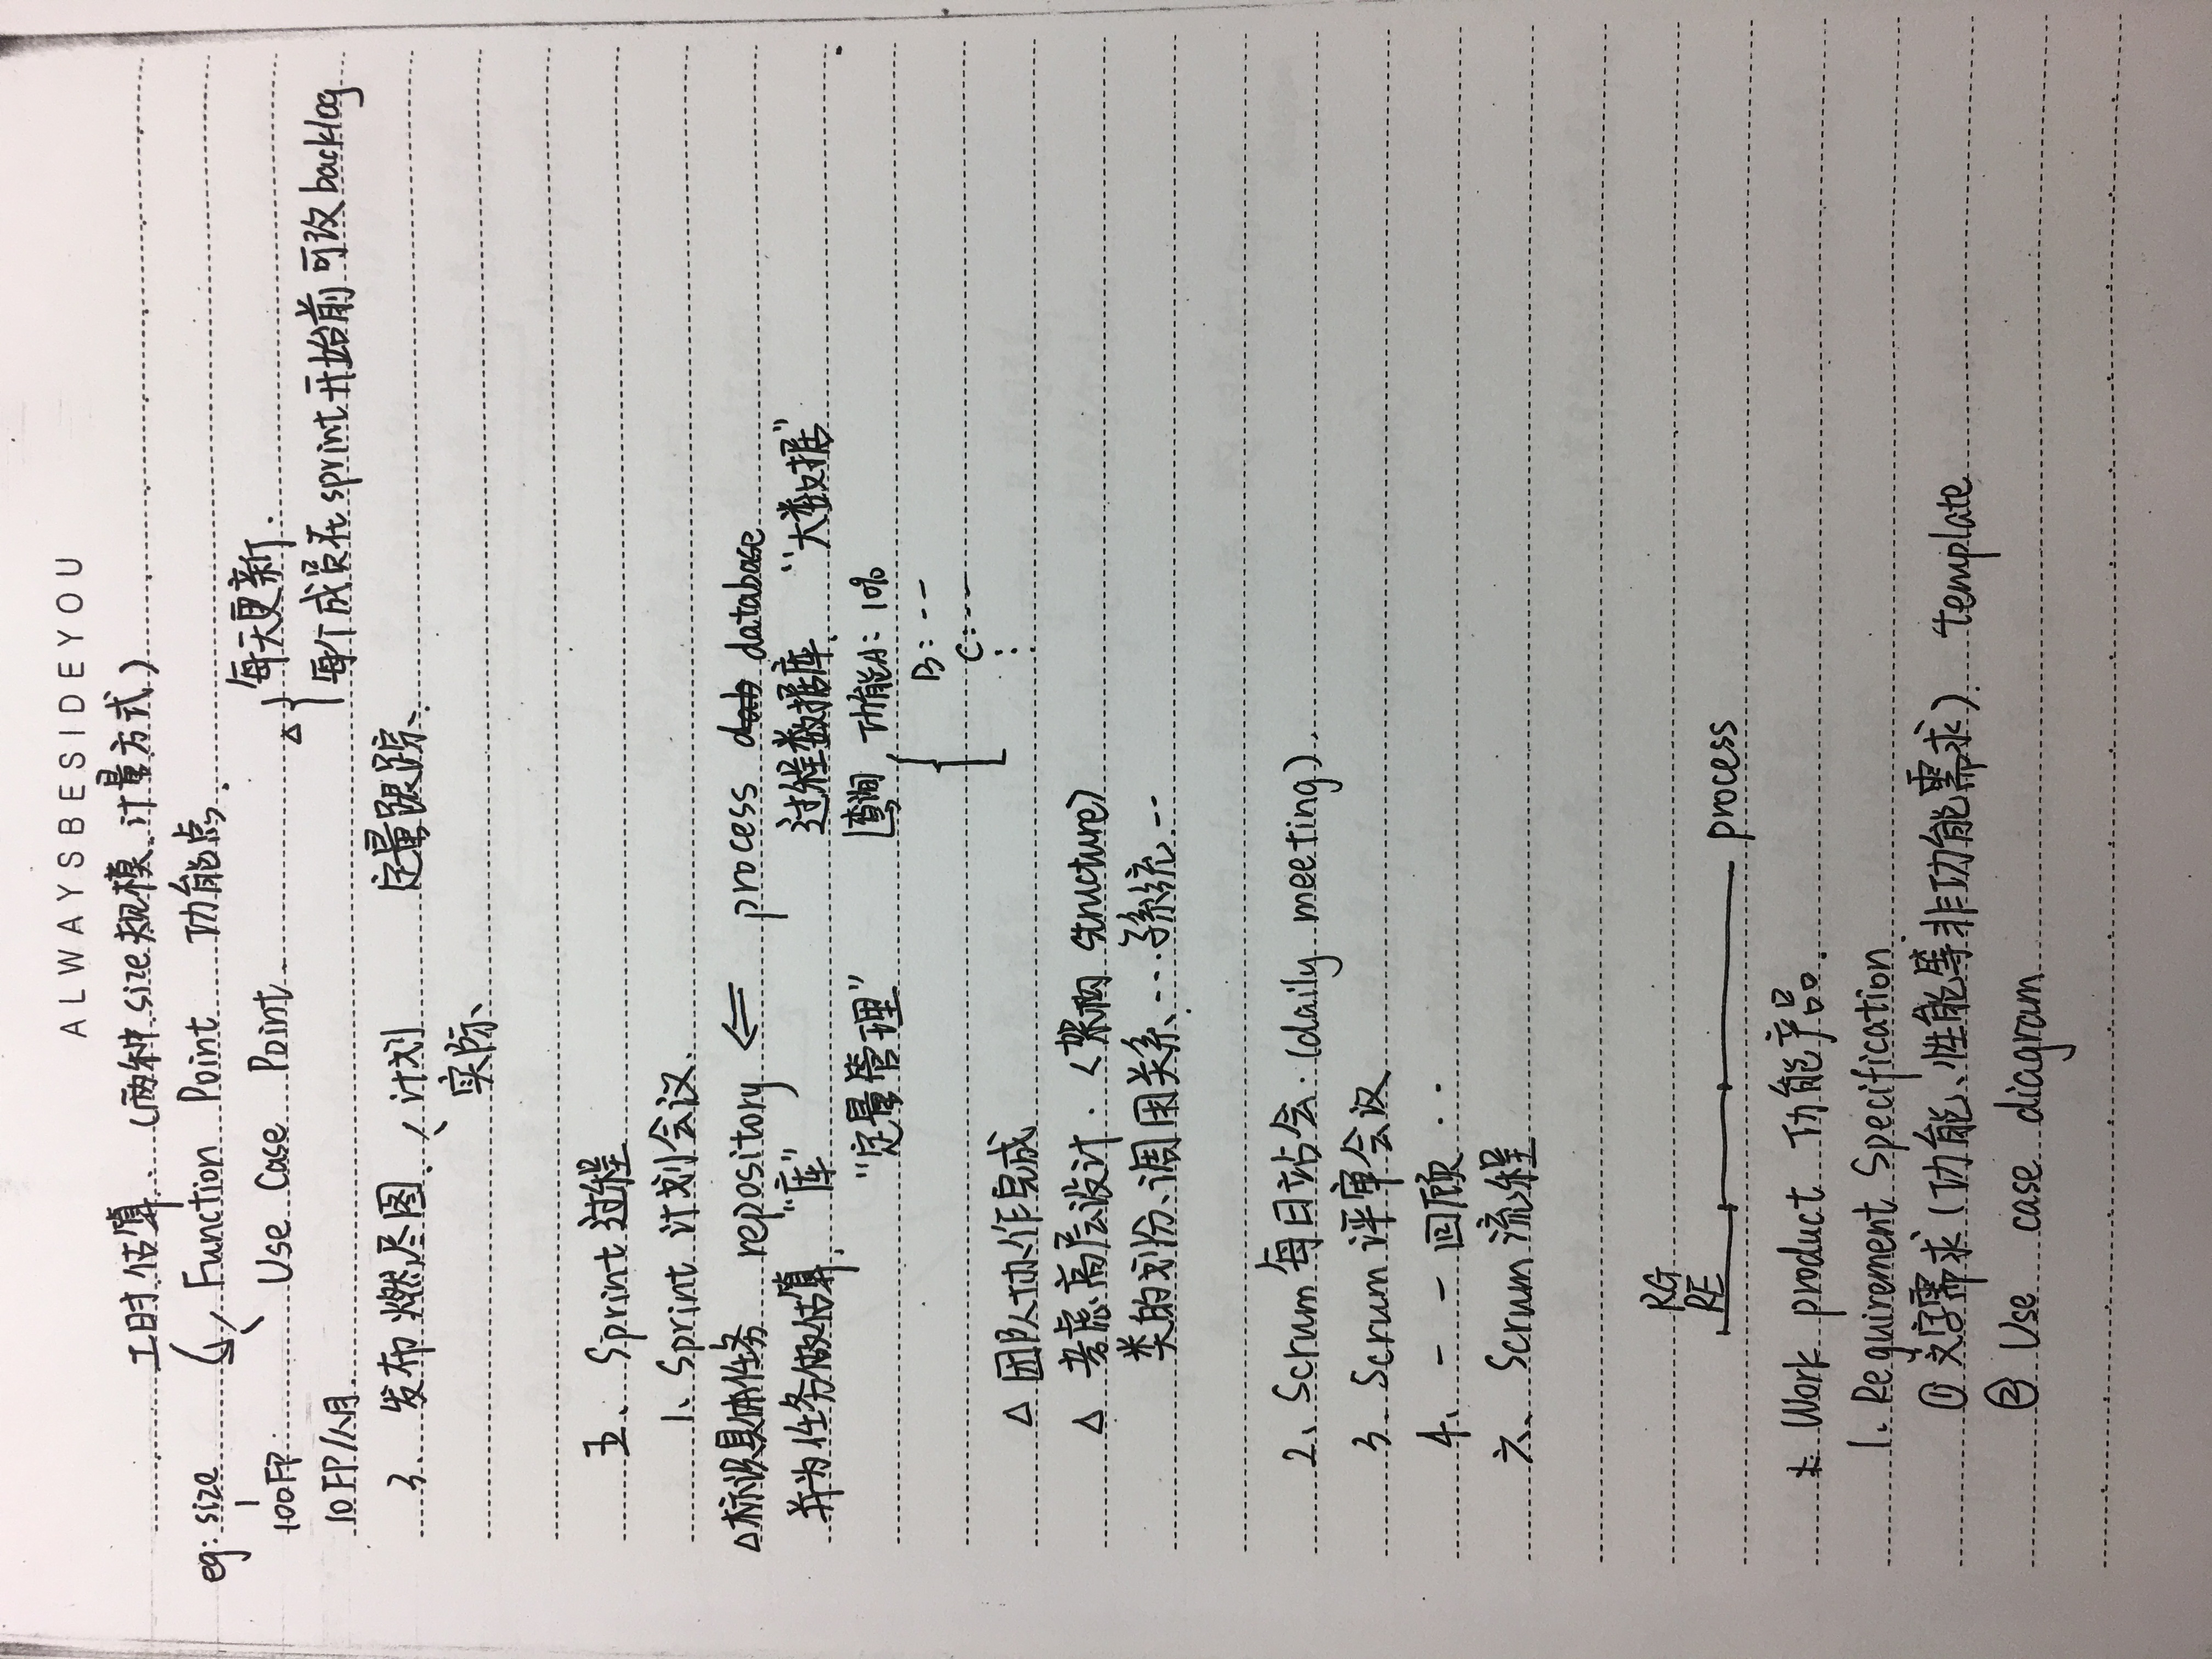 ALWAYSBESIDEYOU
工时估算. (两种size规模计量方式)
eg: size Function Point 功能点.
100FP Use Case Point
△ 每天更新.
10FP/人月. 每个成员在sprint开始前可改backlog
3. 发布燃尽图. 计划 定量跟踪、
实际、
五、Sprint过程
1、Sprint 计划会议.
△标识具体任务 repository ⇐ process dab database
并为任务做估算, “库” 过程数据库. “大数据”
“定量管理” 查询 功能A: 10%
B: --
C: --
⋮
△ 团队协作完成
△ 考虑高层设计.〈架构 structure〉
类的划份、调用关系、…子系统--
2、Scrum每日站会.(daily meeting).
3、Scrum评审会议
4、— — 回顾 · ·
六、Scrum流程
RG
RE
process
* Work product 功能产品.
1. Requirement Specification
① 文字需求(功能、性能等非功能需求). template
② Use case diagram